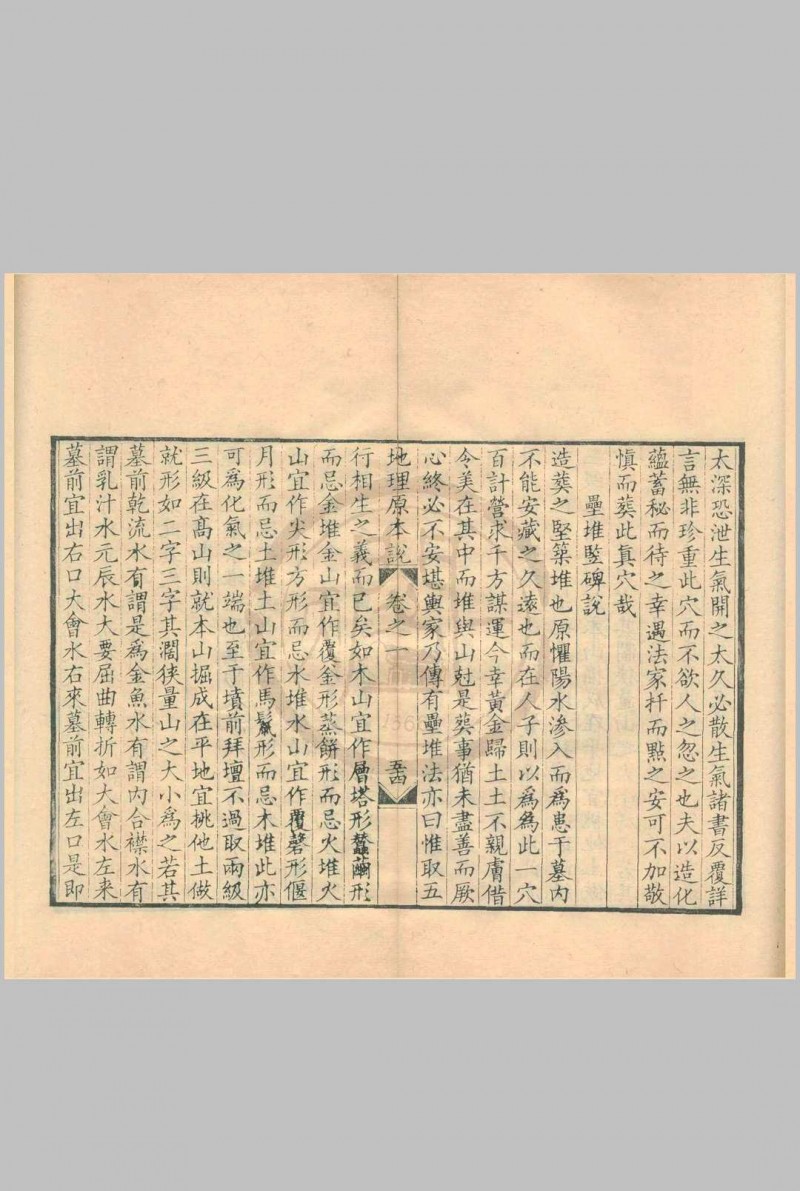 太深恐泄生氣開之太久必散生氣諸書反覆詳
言無非珍重此穴而不欲人之忽之也夫以造化
蘊蓄秘而待之幸遇法家扦而點之安可不加敬
慎而葬此真穴哉
壘堆監碑說
造葬之堅築堆也原懼陽水滲入而為患于墓内
不能安藏之久遠也而在人子則以爲爲此一穴
百計營求千方謀運今幸黃金歸土土不親膚借
令美在其中而堆與山尅是葬事猶未盡善而厥
心終必不安堪輿家乃傳有壘堆法亦曰惟取五
地理原本說 卷之一 五四
行相生之義而已矣如木山宜作層塔形蠶繭形
而忌金堆金山宜作覆釜形蒸餅形而忌火堆火
山宜作尖形方形而忌水堆水山宜作覆磬形偃
月形而忌土堆土山宜作馬鬣形而忌木堆此亦
可爲化氣之一端也至于墳前拜壇不過取兩級
三級在髙山則就本山掘成在平地宜挑他土做
就形如二字三字其濶狹量山之大小爲之若其
墓前乾流水有謂是爲金魚水有謂内合襟水有
謂乳汁水元辰水大要屈曲轉折如大會水左来
墓前宜出右口大會水右來墓前宜出左口是即